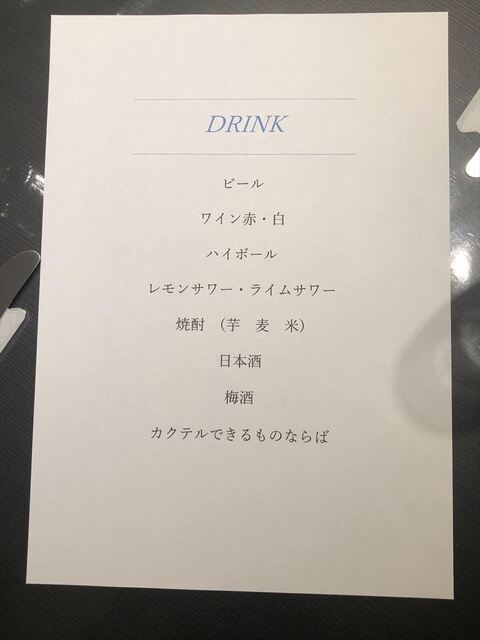 DRINK
ビール
ワイン赤・白
ハイボール
レモンサワー・ライムサワー
焼酎　（芋　麦　米）
日本酒
梅酒
カクテルできるものならば